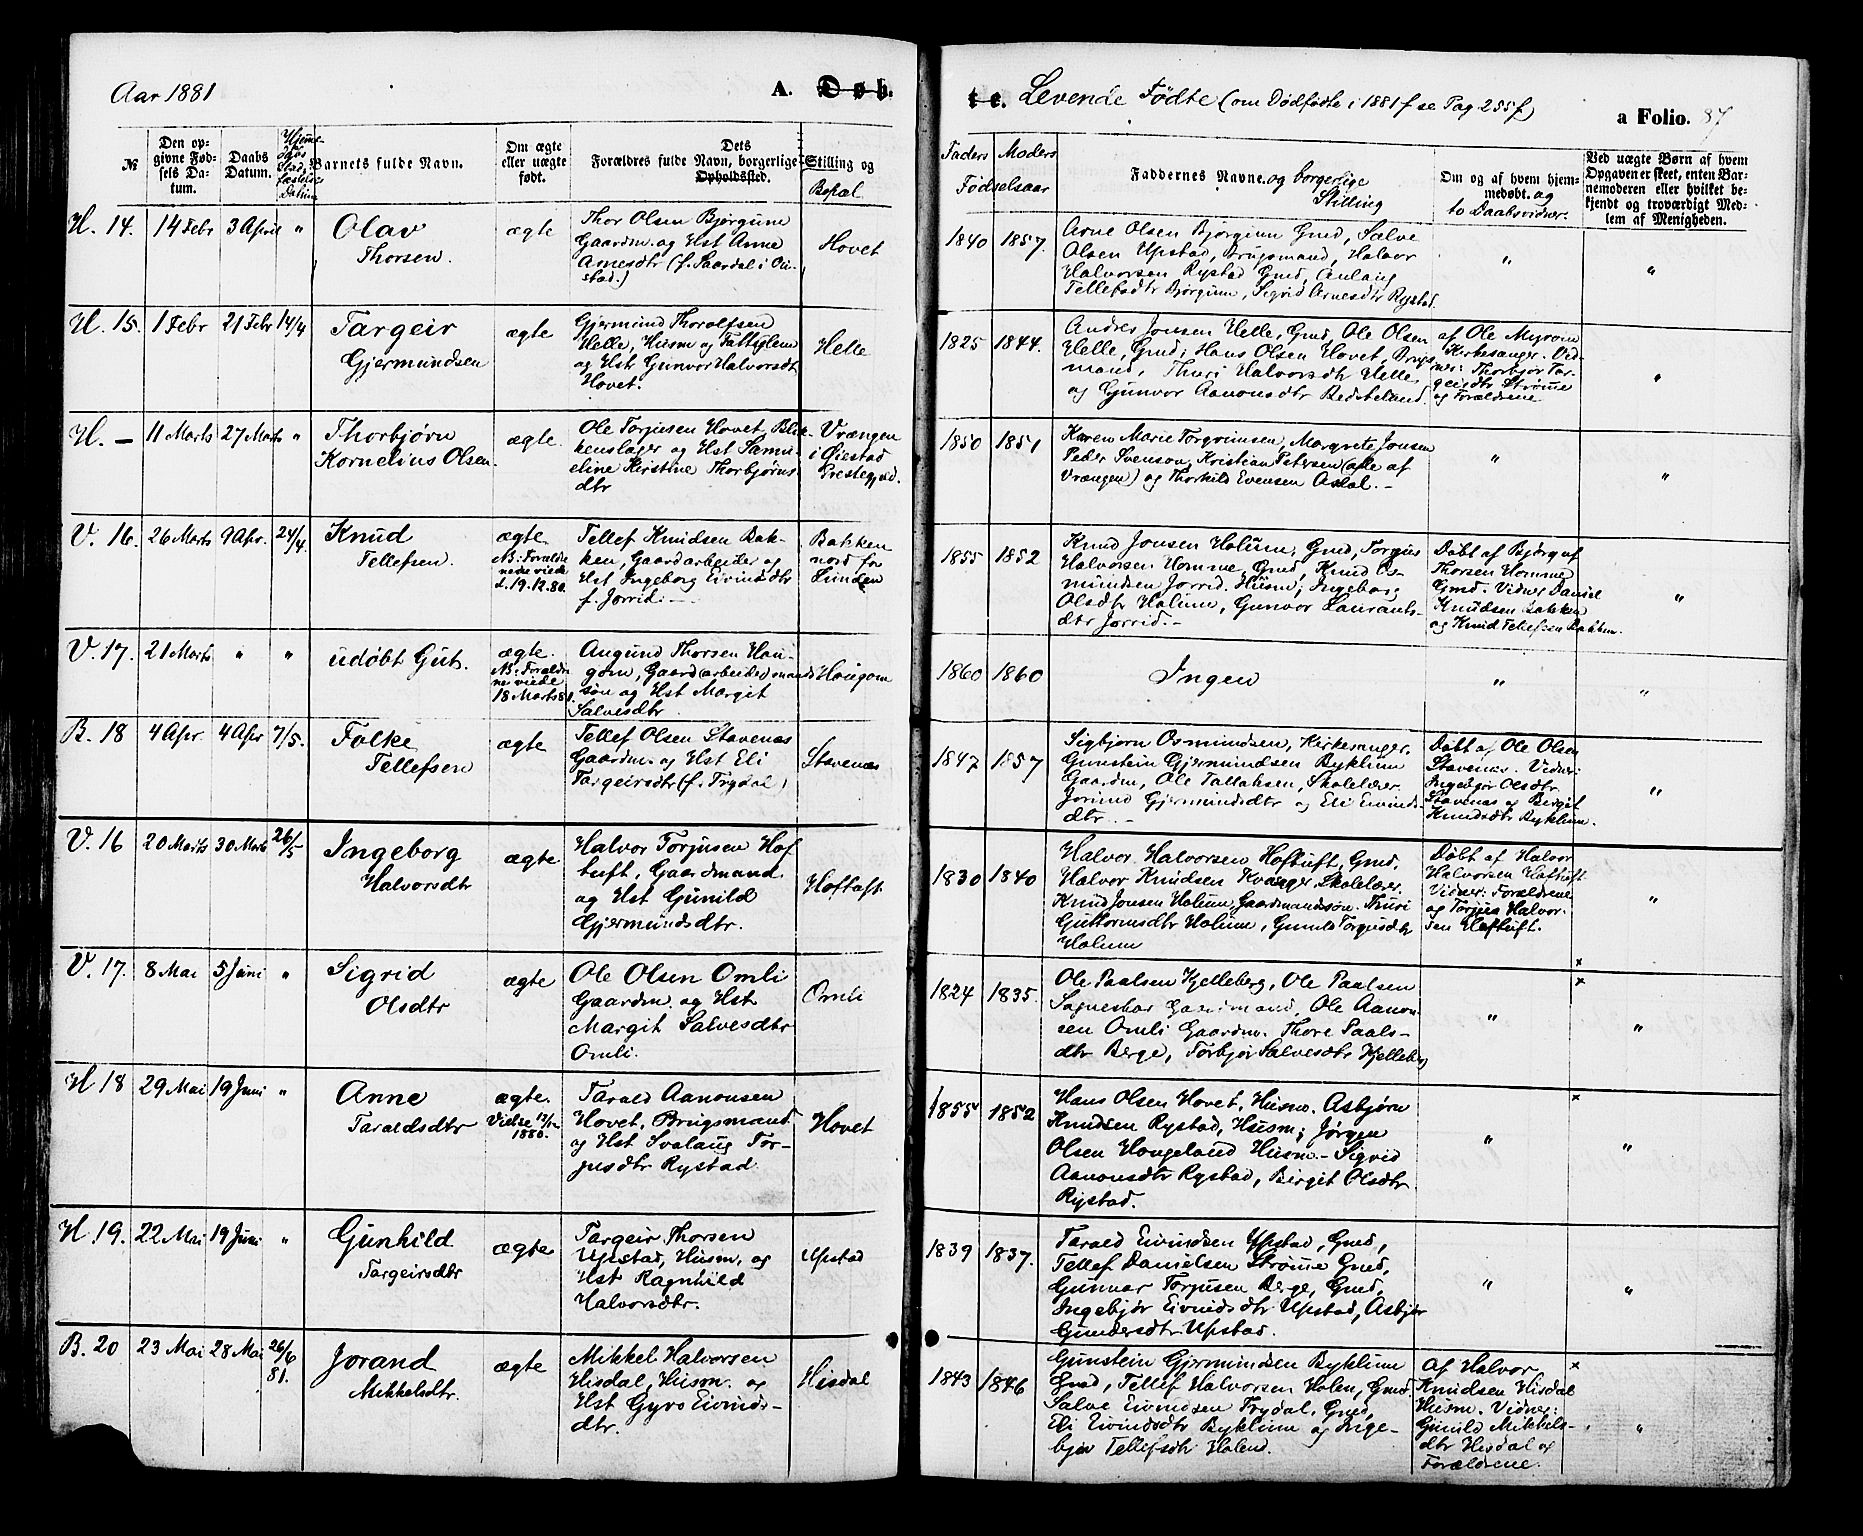 Aar 1881
A. Døb-
te. Levende Fødte (om Dødfødte i 1881 f se Pag 255 f)
a Folio. 87
№
Den op-
givne Fød-
sels Da-
tum.
Daabs
Datum.
Barnets fulde Navn.
Om ægte
eller uægte
født.
Dets
Forældres fulde Navn, borgerlige
Opholdssted.
Stilling og
Bopæl
Faders
Moders
Fødselsaar
Faddernes Navne og borgerlige
Stilling
Om og af hvem hjem-
medøbt. og
to Daabsvidner.
Ved uægte Børn af hvem
Opgaven er skeet, enten Bar-
nemoderen eller hvilket be-
kjendt og troværdigt Med-
lem af Menigheden.
H. 14. 14 Febr 3 April "
Olav
Thorsen.
ægte
Thor Olsen Bjørgum
Gaardm. og Hst Anne
Arnesdtr (f. Saardal i Øi-
stad.)
Hovet
1840 1857.
Arne Olsen Bjørgum Gmd, Salve
Olsen Upstad, Brugsmand, Halvor
Halvorsen Rystad Gmd, Anlaug
Tellefsdtr Bjørgum, Sigrid Arnesdtr Rystad.
" "
H. 15. 1 Febr 21 Febr 14/4
Targeir
Gjermundsen
ægte
Gjermund Thorolfsen
Helle, Husm og Fattiglem
og Hst Gunvor Halvorsdt
Hovet.
Helle
1825 1844.
Andres Jonsen Helle, Gmd, Ole Olsen
Helle, Gmd; Hans Olsen Hovet, Brugs-
mand, Thuri Halvorsdtr Helle
og Gunvor Aanonsdtr Bedsteland.
af Ole Myrvin
Kirkesanger. Vid-
ner: Thorbjør Tar-
geirsdtr Strøme
og Forældrene
"
H. — 11 Marts 27 Marts "
Thorbjørn
Kornelius Olsen.
ægte.
Ole Torjusen Hovet, Blik-
kenslager og Hst Samu-
eline Kirstine Thorbjørns
dtr
Vrængen
i Øiestad
Prestegjeld.
1850 1851
Karen Marie Torgrimsen, Margrete Jonsen
Peder Svenson, Kristian Petersen (alle af
Vrængen) og Thorkild Evensen Asdal. -
" "
V. 16. 26 Marts 9 Apr. 24/4
Knud
Tellefsen.
ægte
NB: Foreldre
nene viede
d. 19.12.80.
Tellef Knudsen Bak-
ken, Gaardarbeider og
Hst Ingeborg Eivindsdtr
f. Jorrid. -
Bakken
nord for
Lunden
1855 1852
Knud Jonsen Holum, Gmd, Torgius
Halvorsen Homme, Gmd, Knud Os-
mundsen Jorrid. Husm; Ingeborg
Olsdtr Holum, Gunvor Laurants-
dtr Jorrid. -
Døbt af Bjørguf
Thorsen Homme
Gmd. Vidner Daniel
Knudsen Bakken
og Knud Tellefsen Bakken.
"
V. 17. 21 Marts " "
udøbt Gut.
ægte.
NB: Forældre
ne viede
18 Marts 81.
Augund Thorsen Hou-
gom, Gaard (arbeider) mands
søn og Hst Margit
Salvesdtr
Hougom
1860 1860
Ingen
" "
B. 18 4 Apr. 4 Apr 7/5.
Folke
Tellefsen
ægte
Tellef Olsen Stavenes
Gaardm. og Hst Eli
Targeirsdtr (f. Trydal)
Stavenes
1847 1857
Sigbjørn Osmundsen, Kirkesanger,
Gunstein Gjermundsen Byklum
Gaardm, Ole Tallaksen, Skolelærer
Jorund Gjermundsdtr og Eli Eivinds
dtr. -
Døbt af Ole Olsen
Stavenes. Vidner:
Ingebjør Olsdtr
Stavenes og Bergit
Knudsdtr Byklum.
"
V. 16 20 Marts 30 Marts 26/5
Ingeborg
Halvorsdtr
ægte
Halvor Torjusen Hof
tuft, Gaardmand
og Hst Gunild
Gjermundsdtr.
Hoftuft
1830 1840
Halvor Halvorsen Hoftuft, Gmd,
Halvor Knudsen Kvaager, Skolelærer
Knud Jonsen Holum, Gaardmandssøn. Thuri
Guttormsdtr Holum, Gunild Torgusdtr
Holum
Døbt af Halvor
Halvorsen Hoftuft
Vidner: Forældrene
og Torjus Halvor-
sen Hoftuft.
"
V. 17. 8 Mai 5 Juni "
Sigrid
Olsdtr
ægte
Ole Olsen Omli
Gaardm og Hst
Margit Salvesdtr
Omli.
Omli
1824 1835.
Ole Paalsen Kjelleberg, Ole Paalsen
Sagneskar Gaardmand, Ole Aanon-
sen Omli Gaardm. Thore Paals-
dtr Berge, Torbjør Salvesdtr Kjelleberg
" "
H 18 29 Mai 19 Juni "
Anne
Taraldsdtr
ægte.
Vielse 12/12
1880.
Tarald Aanonsen
Hovet, Brugsmand
og Hst Svalaug Tor-
jusdtr Rystad
Hovet
1855 1852
Hans Olsen Hovet, Husm. Asbjørn
Knudsen Rystad, Husm; Jørgen
Olsen Haugeland Husm - Sigrid
Aanonsdtr Rystad, Birgit Olsdtr
Rystad.
" "
H 19. 22 Mai 19 Juni "
Gunhild
Targeirsdtr
ægte
Targeir Thorsen
Upstad, Husm, og
Hst Ragnhild
Halvorsdtr.
Upstad
1839 1837.
Tarald Eivindsen Upstad, Gmd,
Tellef Danielsen Strøme Gmd,
Gunnar Torjusen Berge, Gmd,
Ingebjør Eivindsdtr Upstad, Asbjør
Gundersdtr Upstad.
" "
B. 20 23 Mai 28 Mai 26/6
81.
Jorand
Mikkelsdtr.
ægte
Mikkel Halvorsen
Hisdal, Husm. og
Hst Gyro Eivinds-
dtr.
Hisdal
1843 1846
Gunstein Gjermundsen Byklum
Gmd, Tellef Halvorsen Holen, Gmd.
Salve Eivindsen Trydal, Gmd,
Eli Eivindsdtr Byklum og Inge-
bjør Tellefsdtr Holen.
af Halvor
Knudsen Hisdal
Husm. Vidner:
Gunild Mikkels-
dtr Hisdal og
Forældrene.
"